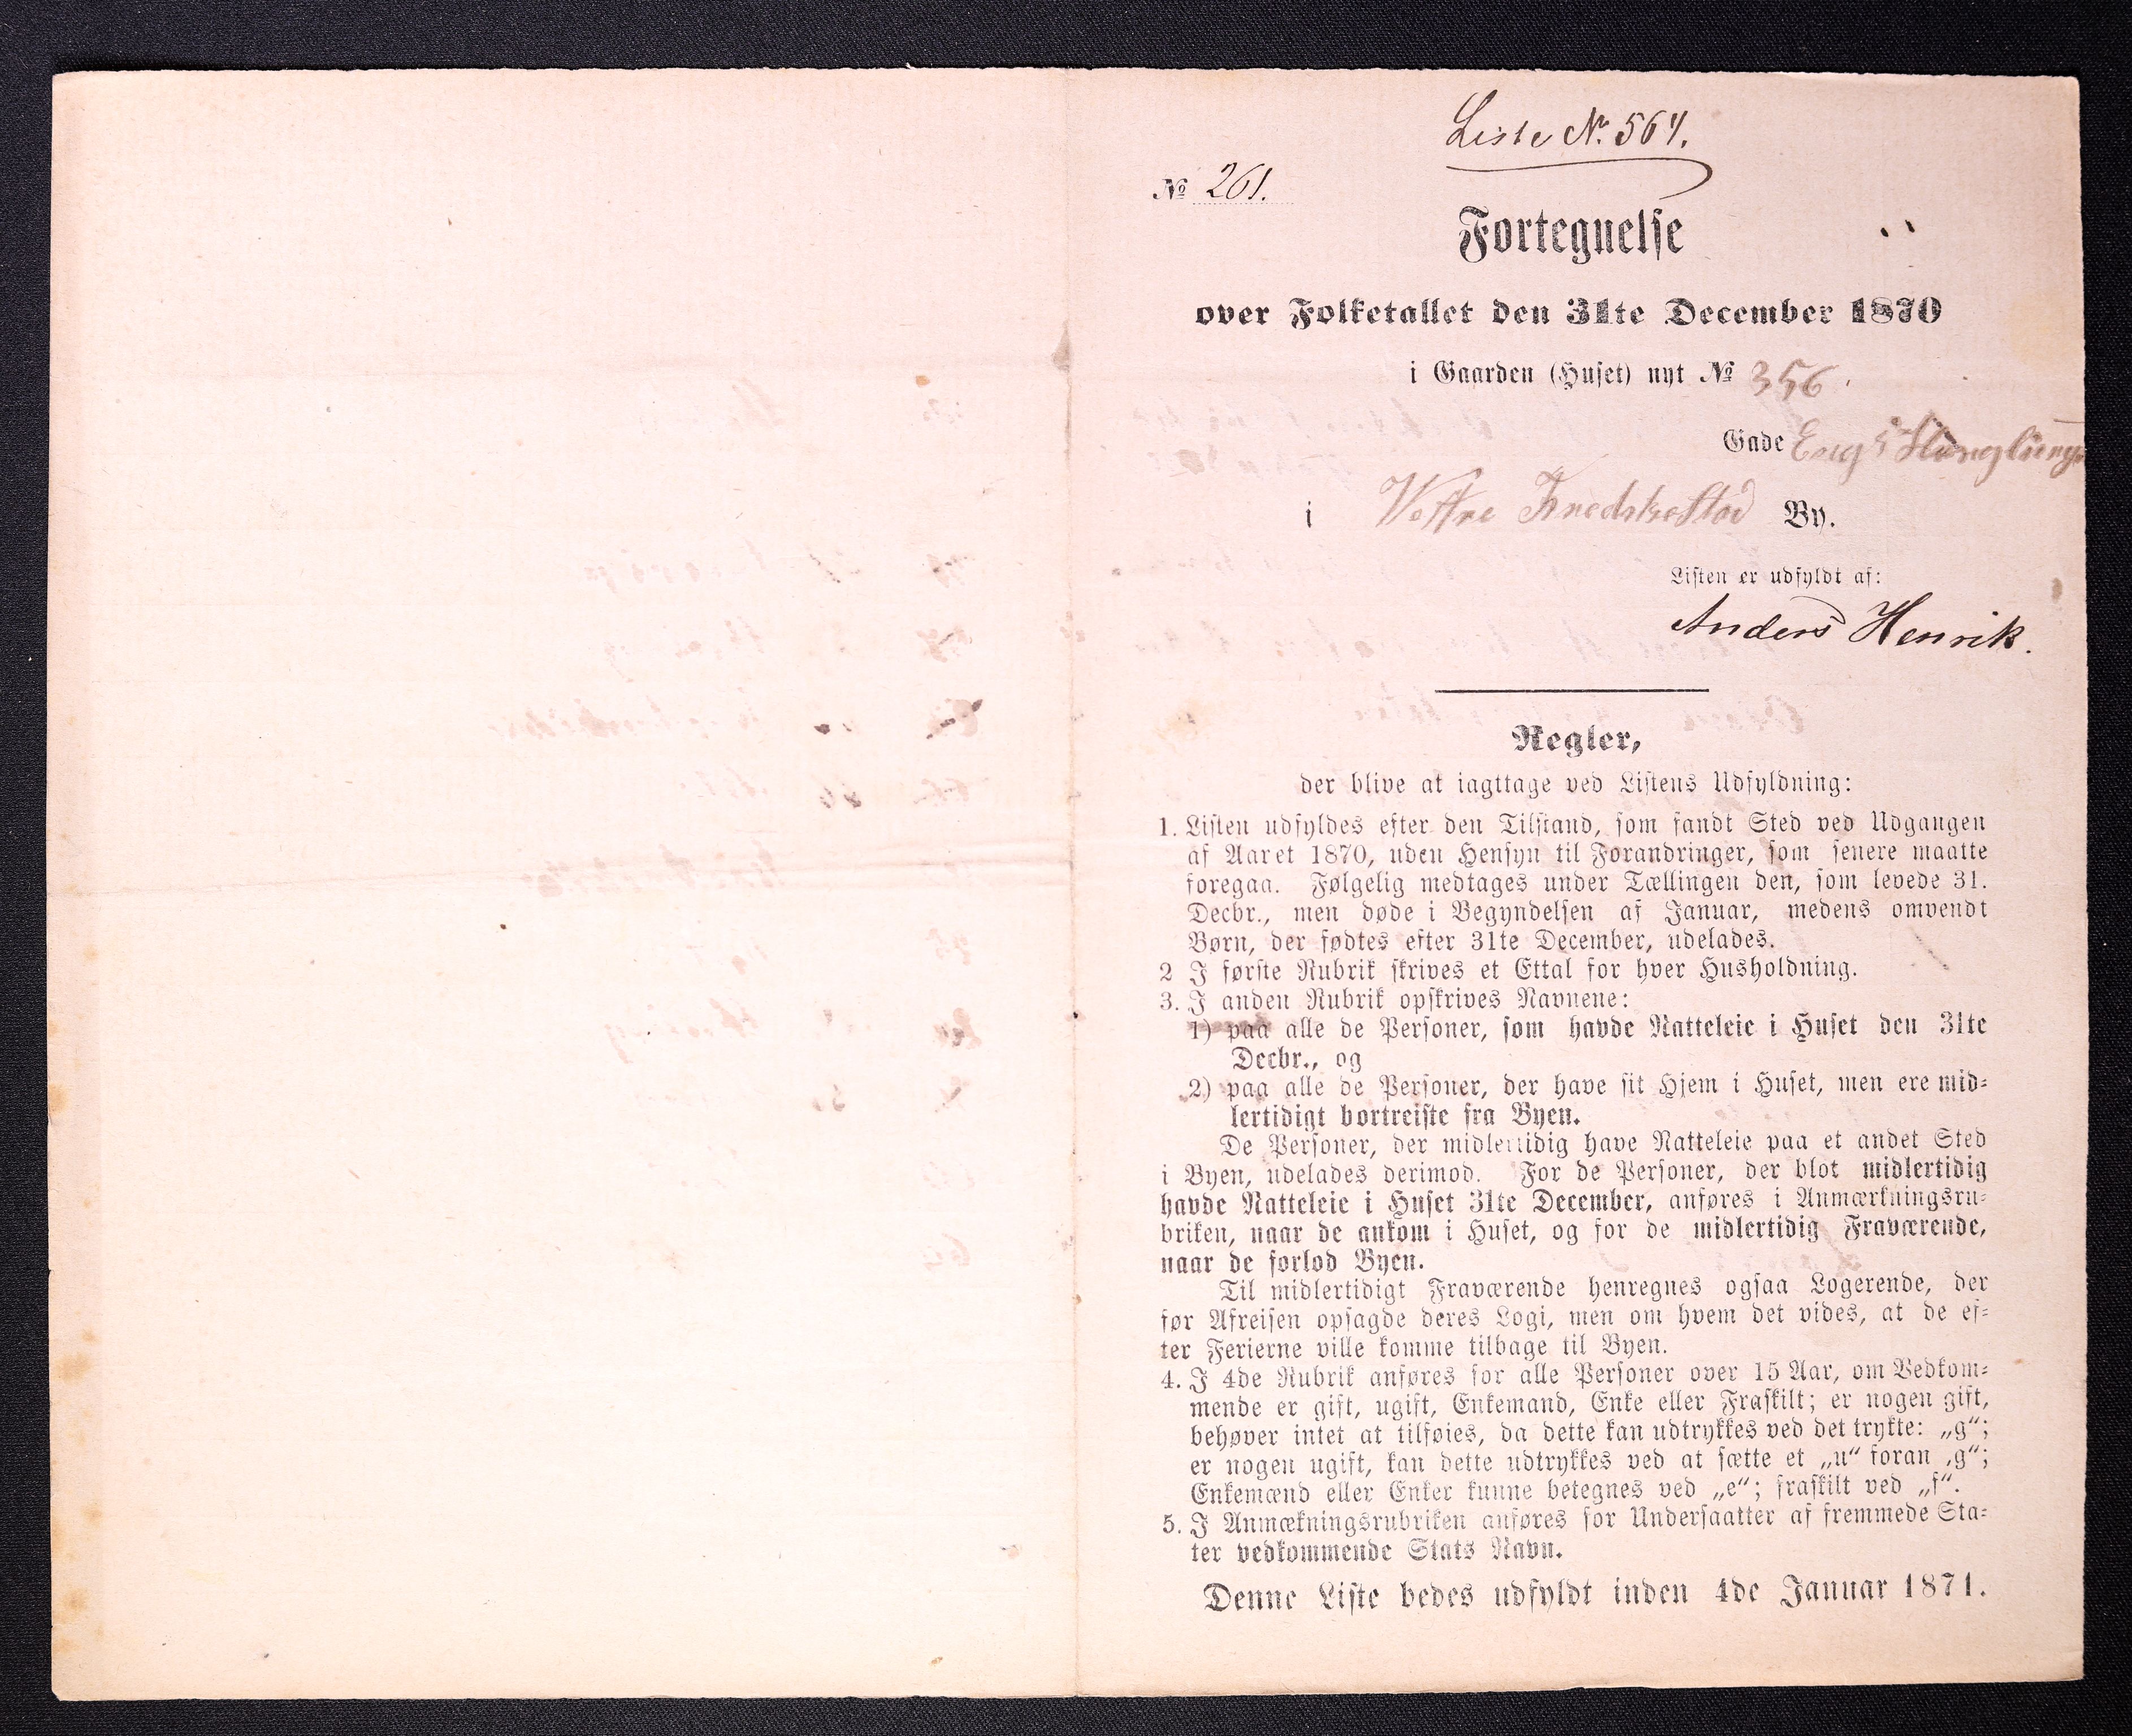 Liste № 564.
№ 261.
Fortegnelse
over Folketallet den 31te December 1870
i Gaarden (Huset) nyt № 356.
Gade
i By.
Listen er udfyldt af:
Anders Henrik.
Regler,
der blive at iagttage ved Listens Udfyldning:
1. Listen udfyldes efter den Tilstand, som fandt Sted ved Udgangen
af Aaret 1870, uden Hensyn til Forandringer, som senere maatte
foregaa. Følgelig medtages under Tællingen den, som levede 31.
Decbr., men døde i Begyndelsen af Januar, medens omvendt
Børn, der fødtes efter 31te December, udelades.
2 I første Rubrik skrives et Ettal for hver Husholdning.
3. I anden Rubrik opskrives Navnene:
1) paa alle de Personer, som havde Natteleie i Huset den 31te
Decbr., og
2) paa alle de Personer, der have sit Hjem i Huset, men ere mid-
lertidigt bortreiste fra Byen.
De Personer, der midlertidig have Natteleie paa et andet Sted
i Byen, udelades derimod. For de Personer, der blot midlertidig
havde Natteleie i Huset 31te December, anføres i Anmærkningsru-
briken, naar de ankom i Huset, og for de midlertidig Fraværende,
naar de forlod Byen.
Til midlertidigt Fraværende henregnes ogsaa Logerende, der
før Afreisen opsagde deres Logi, men om hvem det vides, at de ef-
ter Ferierne ville komme tilbage til Byen.
4. I 4de Rubrik anføres for alle Personer over 15 Aar, om Vedkom-
mende er gift, ugift, Enkemand, Enke eller Fraskilt; er nogen gift,
behøver intet at tilføies, da dette kan udtrykkes ved det trykte: „g“;
er nogen ugift, kan dette udtrykkes ved at sætte et „u“ foran ‚g“;
Enkemænd eller Enker kunne betegnes ved „e“; fraskilt ved „f“.
5. I Anmækningsrubriken anføres for Undersaatter af fremmede Sta-
ter vedkommende Stats Navn.
Denne Liste bedes udfyldt inden 4de Januar 1871.